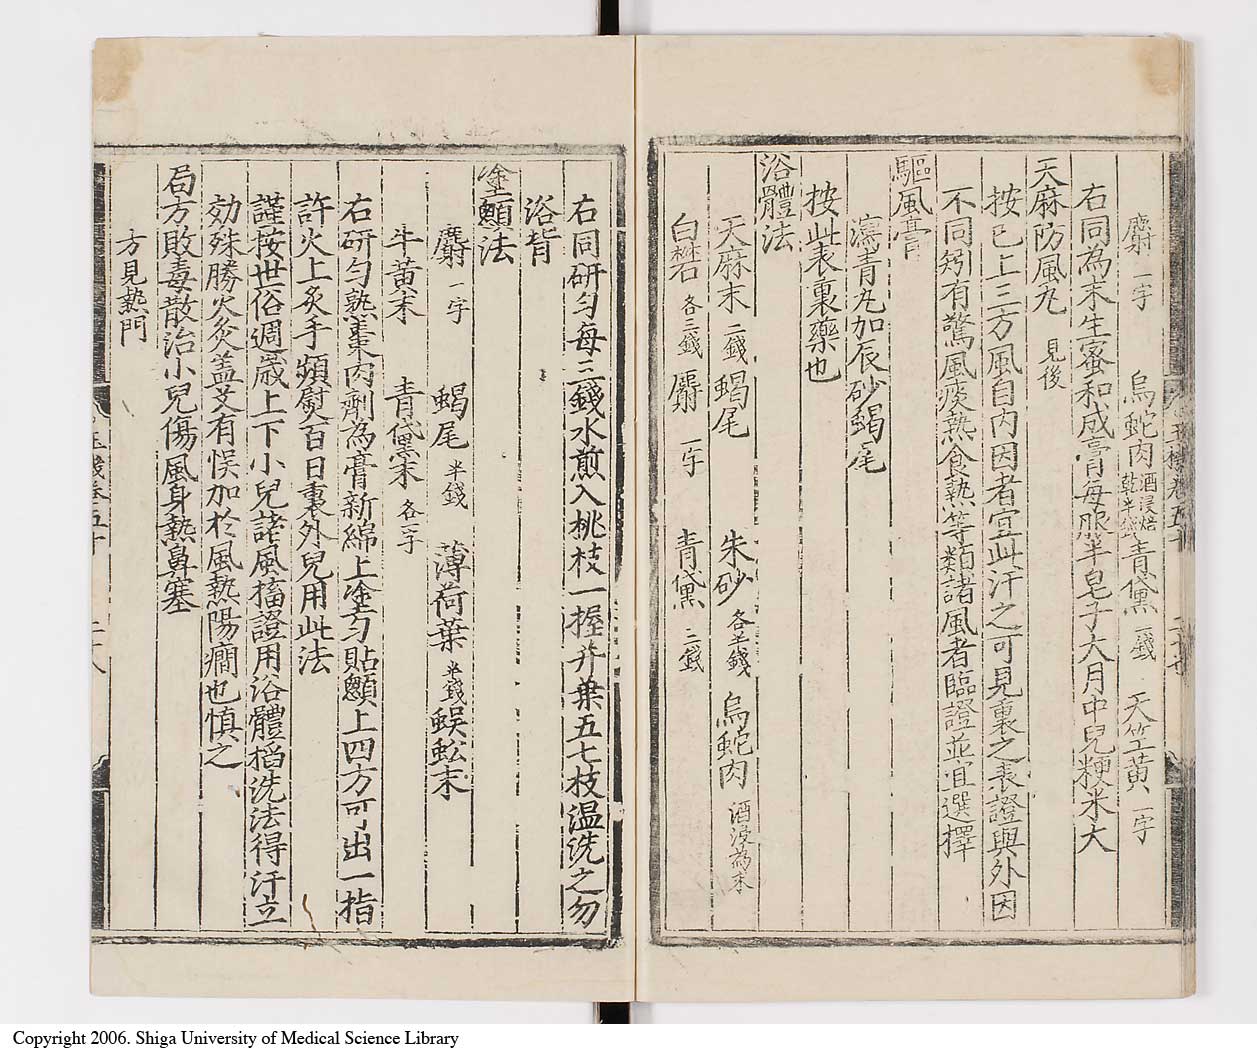 麝一字 烏蛇肉酒浸焙乾半錢 青黛一錢 天竺黃一字
右同為末生蜜和成膏每服半皂子大月中兒粳米大
天麻防風丸見後
按已上三方風自內因者宜此汗之可見裏之表證與外因
不同矧有驚風痰熱食熱等類諸風者臨證並宜選擇
驅風膏
瀉青丸加辰砂蝎尾
按此表裏藥也
浴體法
天麻末二錢 蝎尾 朱砂各半錢 烏蛇肉酒浸為末
白礬各三錢 麝一字 青黛三錢
右同研勻每三錢水煎入桃枝一握并葉五七枝温洗之勿
浴背
塗顖法
麝一字 蝎尾半錢 薄荷葉半錢 蜈蚣末
牛黃末 青黛末各一字
右研勻熟棗肉劑為膏新綿上塗勻貼顖上四方可出一指
許火上炙手頻熨百日裏外兒用此法
謹按世俗週歲上下小兒諸風搐證用浴體搯洗法得汗立
効殊勝火灸盖艾有悞加於風熱陽癇也慎之
局方敗毒散治小兒傷風身熱鼻塞
方見熱門
Copyright 2006. Shiga University of Medical Science Library